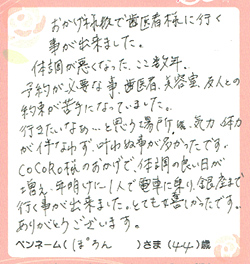 おかげ様で歯医者様に行く
事が出来ました。
体調が悪くなった、ここ数年、
予約が必要な事、歯医者、美容室、友人との
約束が苦手になっていました。
行きたいなぁ…と思う場所も、気力、体力
が伴なわず、叶わぬ事が多かったです。
CoCoRo様のおかげで、体調の良い日が
増え、年明けに1人で電車に乗り、銀座まで
行く事が出来ました。とても嬉しかったです。
ありがとうございます。
ペンネーム(ぽろん)さま(44)歳